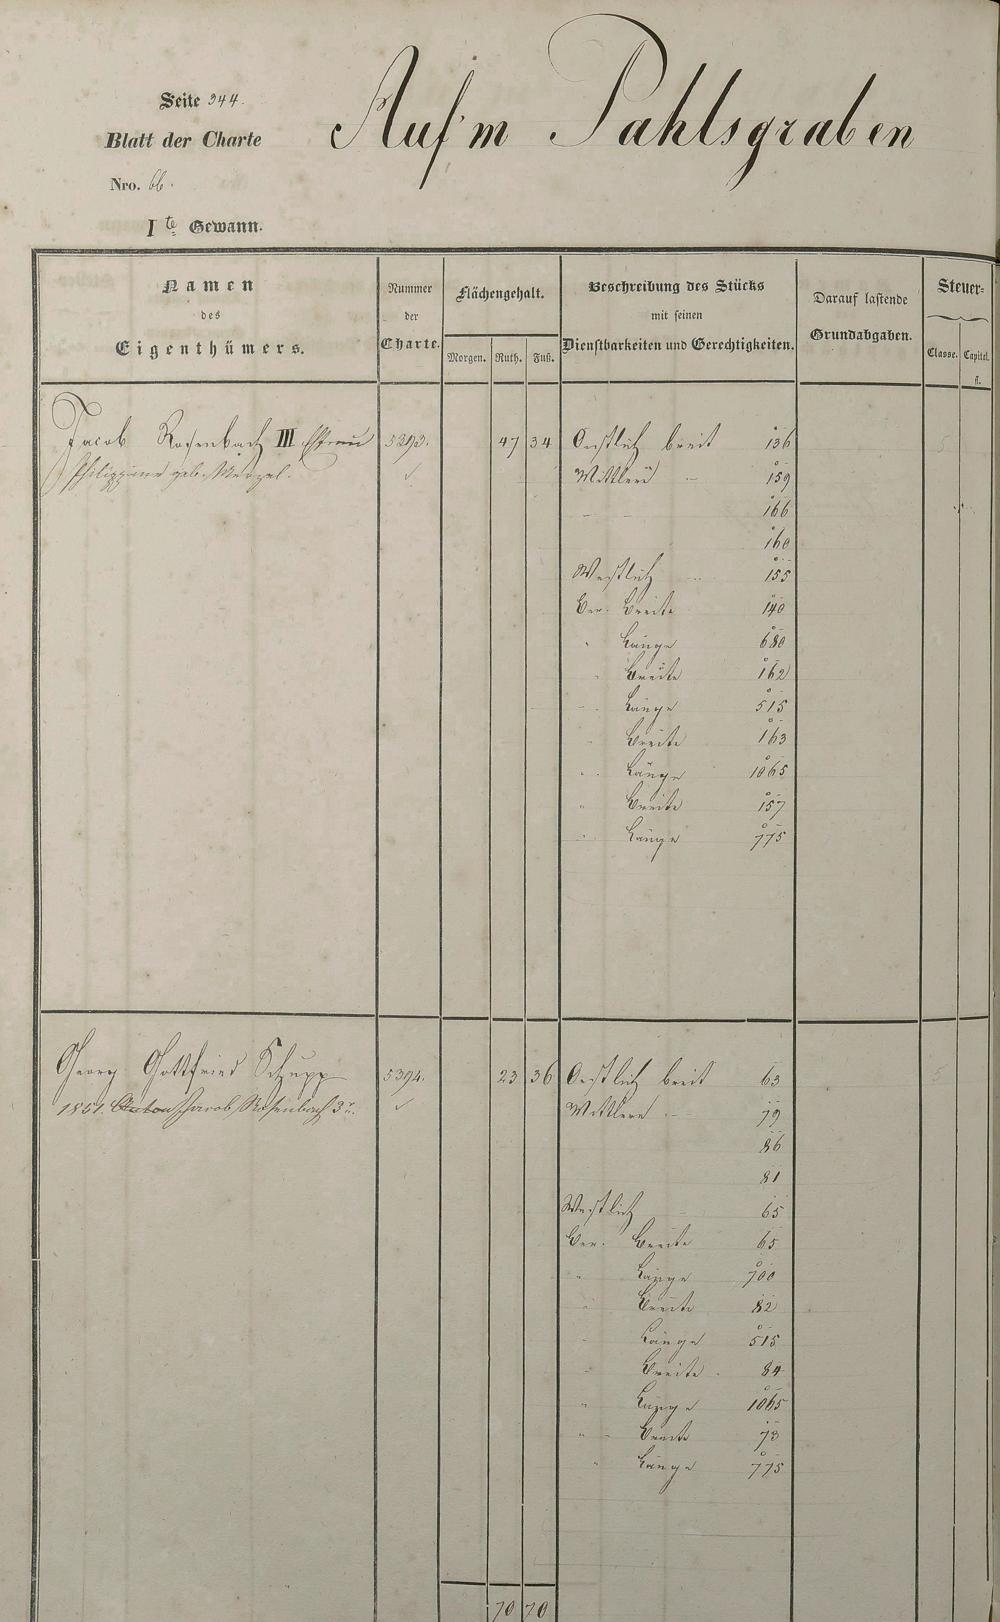 Seite 344.
Auf'm Pahlsgraben
Blatt der Charte
Nro. 66.
I te Gewann.
Namen des Eigenthümers.
Nummer der Charte.
Flächengehalt.
Morgen. Ruth. Fuß.
Beschreibung des Stücks mit seinen Dienstbarkeiten und Gerechtigkeiten.
Darauf lastende Grundabgaben.
Steuer-
Classe. Capitel. fl.
Jacob Rosenbach III 5393. 47 34 Oestlich breit 136
Philippine geb. Menzel. Mittlere 159
166
160
Westlich 155
Ber. Breite 140
" Länge 680
" Breite 162
" Länge 515
" Breite 163
" Länge 1065
" Breite 157
" Länge 775
Georg Gottfried Schupp 5394. 23 36 Oestlich breit 63
1851. Jacob Rosenbach 3r. Mittlere 79
86
81
Westlich 65
Ber. Breite 65
" Länge 700
" Breite 82
" Länge 515
" Breite 84
" Länge 1065
" Breite 73
" Länge 775
70 70